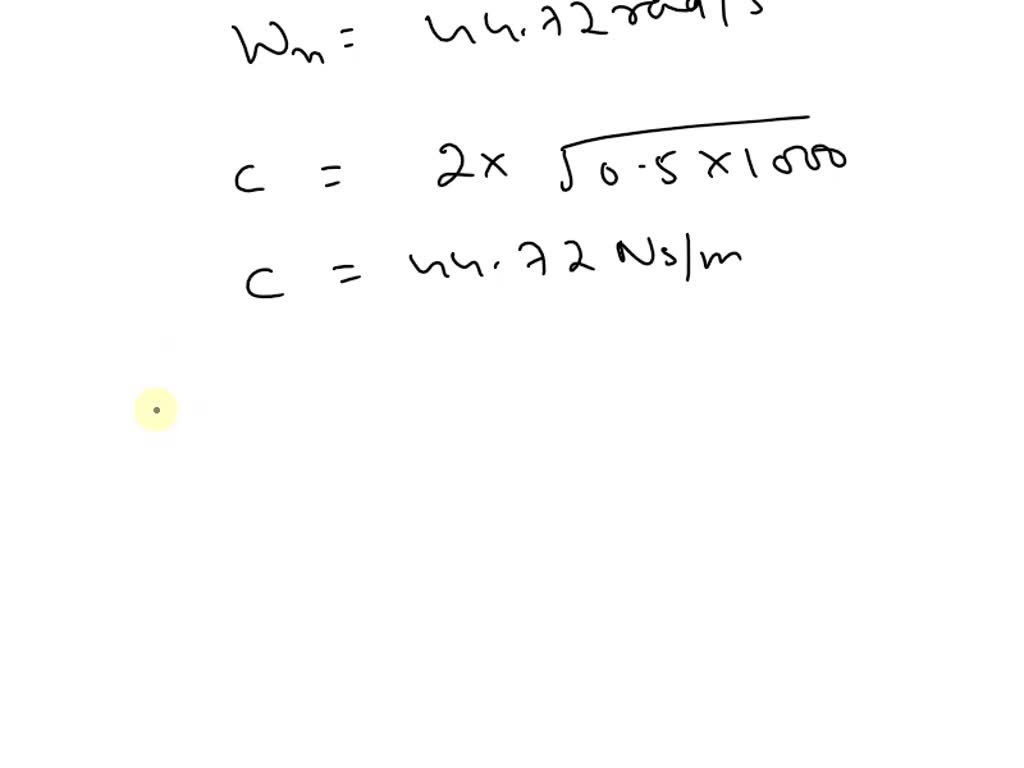 Wn = 44.72 rad/s
c = 2x √0.5x1000
c = 44.72 Ns/m